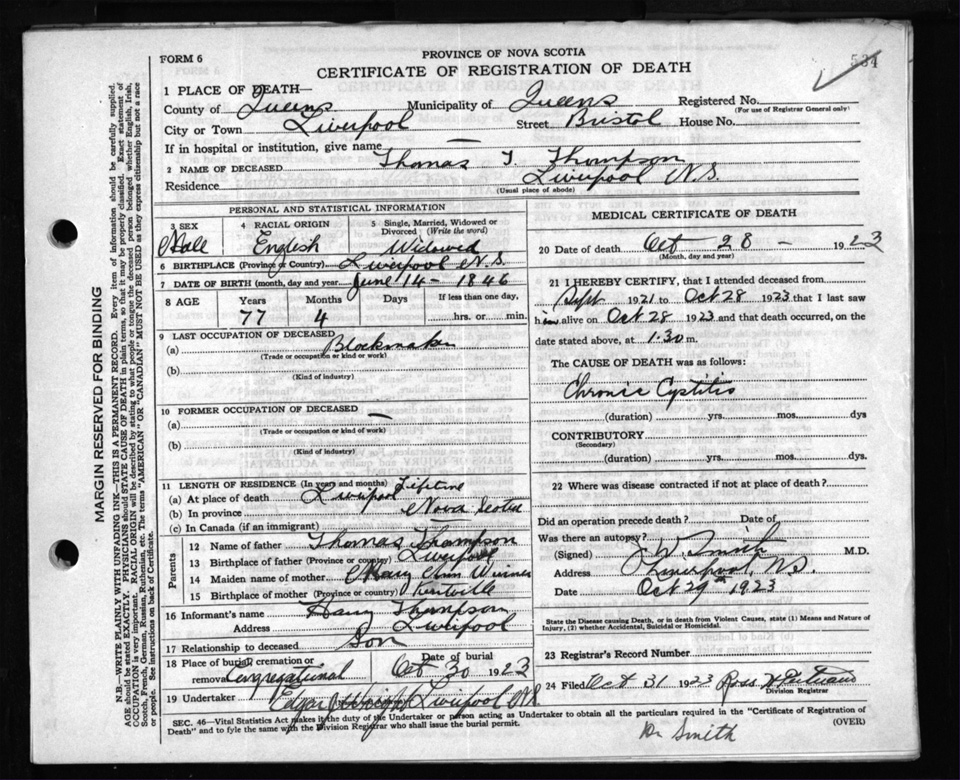 PROVINCE OF NOVA SCOTIA
FORM 6
CERTIFICATE OF REGISTRATION OF DEATH
534
1 PLACE OF DEATH—
County of Queens Municipality of Queens Registered No.
(For use of Registrar General only)
City or Town Liverpool Street Bristol House No.
If in hospital or institution, give name —
2 NAME OF DECEASED Thomas T. Thompson
Residence Liverpool N.S.
(Usual place of abode)
PERSONAL AND STATISTICAL INFORMATION
3 SEX 4 RACIAL ORIGIN 5 Single, Married, Widowed or Divorced (Write the word)
Male English Widowed
6 BIRTHPLACE (Province or Country) Liverpool N.S.
7 DATE OF BIRTH (month, day and year) June 14 - 1846
8 AGE Years Months Days If less than one day,
77 4 hrs. or min.
9 LAST OCCUPATION OF DECEASED
(a) Blockmaker
(Trade or occupation or kind or work)
(b)
(Kind of industry)
10 FORMER OCCUPATION OF DECEASED —
(a)
(Trade or occupation or kind of work)
(b)
(Kind of industry)
11 LENGTH OF RESIDENCE (In years and months) Lifetime
(a) At place of death Liverpool
(b) In province Nova Scotia
(c) In Canada (if an immigrant)
Parents
12 Name of father Thomas Thompson
13 Birthplace of father (Province or country) Liverpool
14 Maiden name of mother Mary Ann
15 Birthplace of mother (Province or country)
16 Informant's name Harry Thompson
Address Liverpool
17 Relationship to deceased Son
18 Place of burial, cremation or removal Congregational Date of burial Oct 30 1923
19 Undertaker Edgar Wright Liverpool N.S.
MEDICAL CERTIFICATE OF DEATH
20 Date of death Oct 28 - 1923
(Month, day and year)
21 I HEREBY CERTIFY, that I attended deceased from
Sept 1921 to Oct 28 1923 that I last saw
him alive on Oct 28 1923 and that death occurred, on the
date stated above, at 1.30 m.
The CAUSE OF DEATH was as follows:
Chronic Cystitis
(duration) yrs. mos. dys
CONTRIBUTORY
(Secondary)
(duration) yrs. mos. dys.
22 Where was disease contracted if not at place of death?
Did an operation precede death? Date of
Was there an autopsy?
(Signed) J. W. Smith M.D.
Address Liverpool, N.S.
Date Oct 29th 1923
State the Disease causing Death, or in death from Violent Causes, state (1) Means and Nature of Injury, (2) whether Accidental, Suicidal or Homicidal.
23 Registrar's Record Number
24 Filed Oct 31 1923 Ross
Division Registrar
SEC. 46—Vital Statistics Act makes it the duty of the Undertaker or person acting as Undertaker to obtain all the particulars required in the "Certificate of Registration of
Death" and to fyle the same with the Division Registrar who shall issue the burial permit. (OVER)
Dr Smith
MARGIN RESERVED FOR BINDING
N.B.—WRITE PLAINLY WITH UNFADING INK—THIS IS A PERMANENT RECORD. Every item of information should be carefully supplied.
AGE should be stated EXACTLY. PHYSICIANS should STATE CAUSE OF DEATH in plain terms, so that it may be properly classified. Exact statement of
OCCUPATION is very important. RACIAL ORIGIN will be described by stating to what people or tongue the deceased person belonged whether English, Irish,
Scotch, French, German, Russian, Ruthenian, etc. The terms "AMERICAN" or "CANADIAN" MUST NOT BE USED as they express citizenship but not a race
or people. See instructions on back of Certificate.